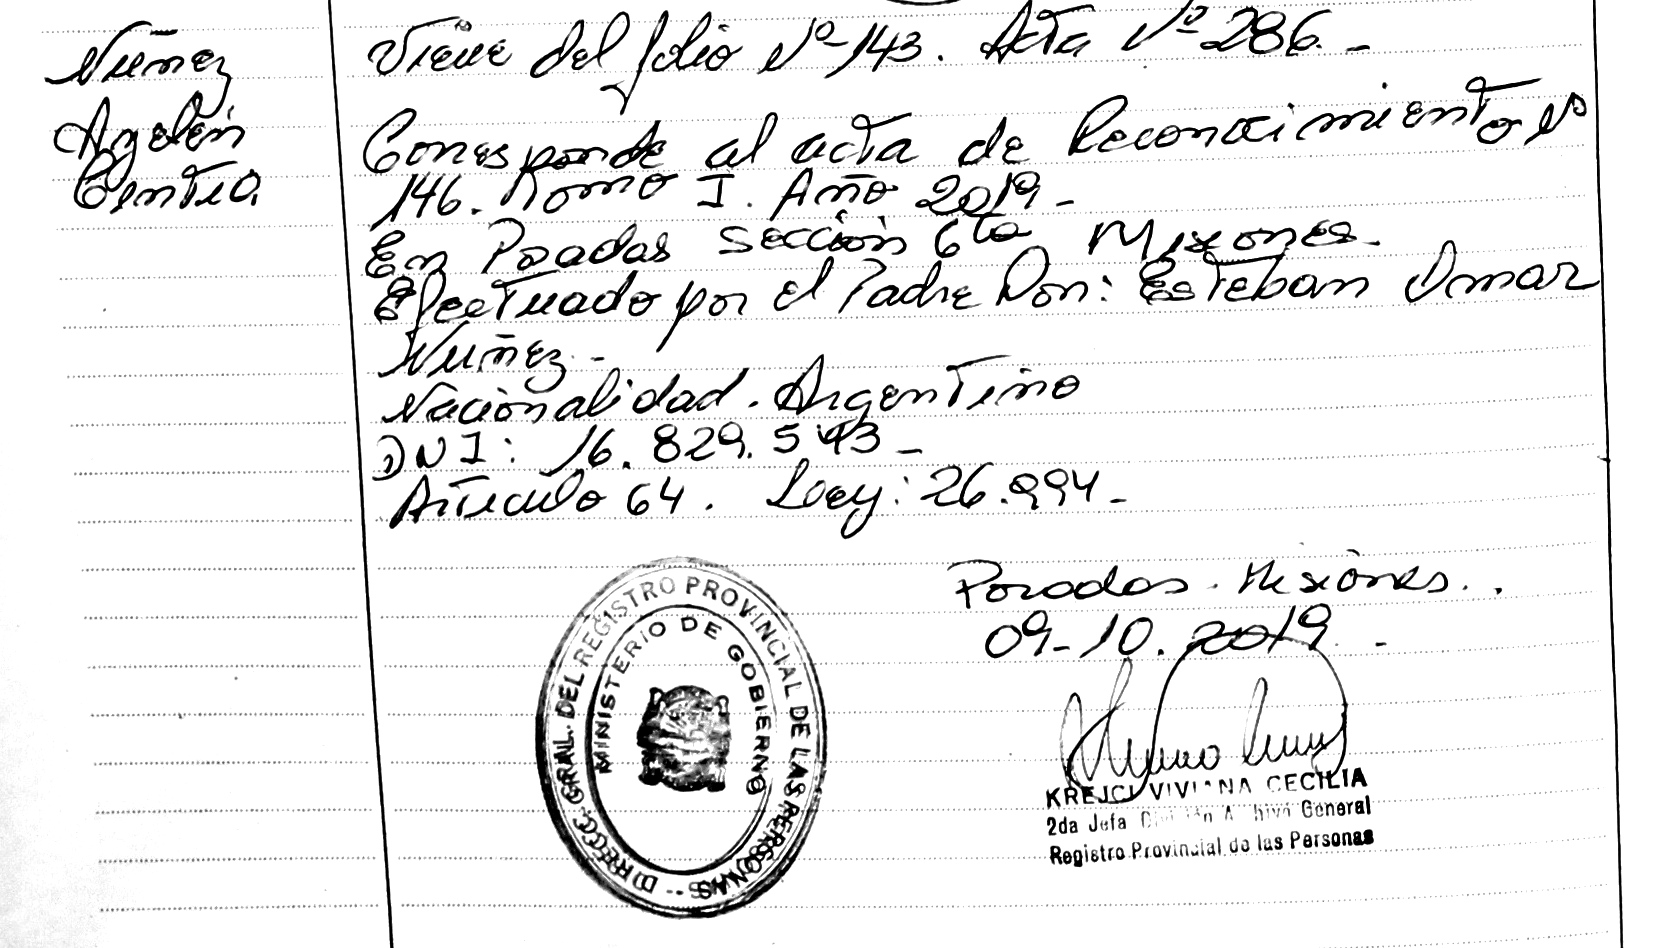 Nuñez
Ayelén
Cintia
Viene del folio Nº 143. Acta Nº 286. -
Corresponde al acta de Reconocimiento Nº
146. Tomo I. Año 2019 -
En Posadas sección 6ta Misiones -
Efectuado por el Padre Don: Esteban Omar
Nuñez -
Nacionalidad. Argentino
DNI: 16.829.543 -
Artículo 64. Ley: 26.994 -
Posadas. Misiones. .
09-10.2019 -
DIRECC. GRAL. DEL REGISTRO PROVINCIAL DE LAS PERSONAS
MINISTERIO DE GOBIERNO
KREJCI VIVIANA CECILIA
2da Jefa División Archivo General
Registro Provincial de las Personas